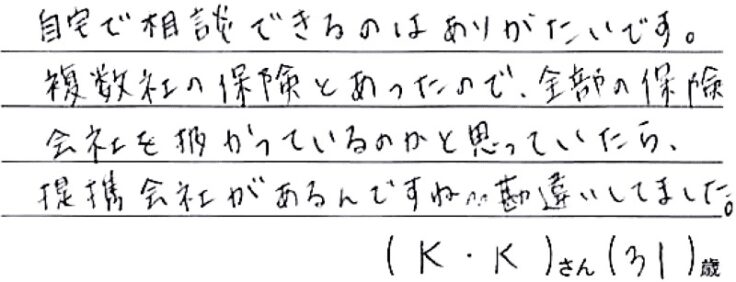 自宅で相談できるのはありがたいです。
複数社の保険とあったので、全部の保険
会社を扱かっているのかと思っていたら、
提携会社があるんですね…勘違いしてました。
(K・K)さん(31)歳